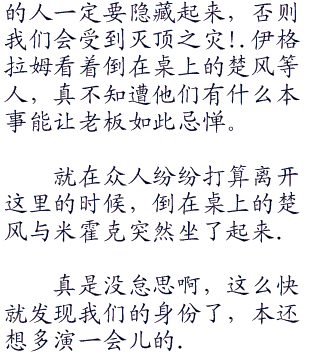 的人一定要隐藏起来，否则
我们会受到灭顶之灾!.伊格
拉姆看着倒在桌上的楚风等
人，真不知遭他们有什么本
事能让老板如此忌惮。
就在众人纷纷打算离开
这里的时候，倒在桌上的楚
风与米霍克突然坐了起来.
真是没怠思啊，这么快
就发现我们的身份了，本还
想多演一会儿的.